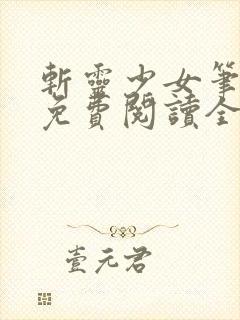 斬靈少女筆
免費閱讀全
壹元君